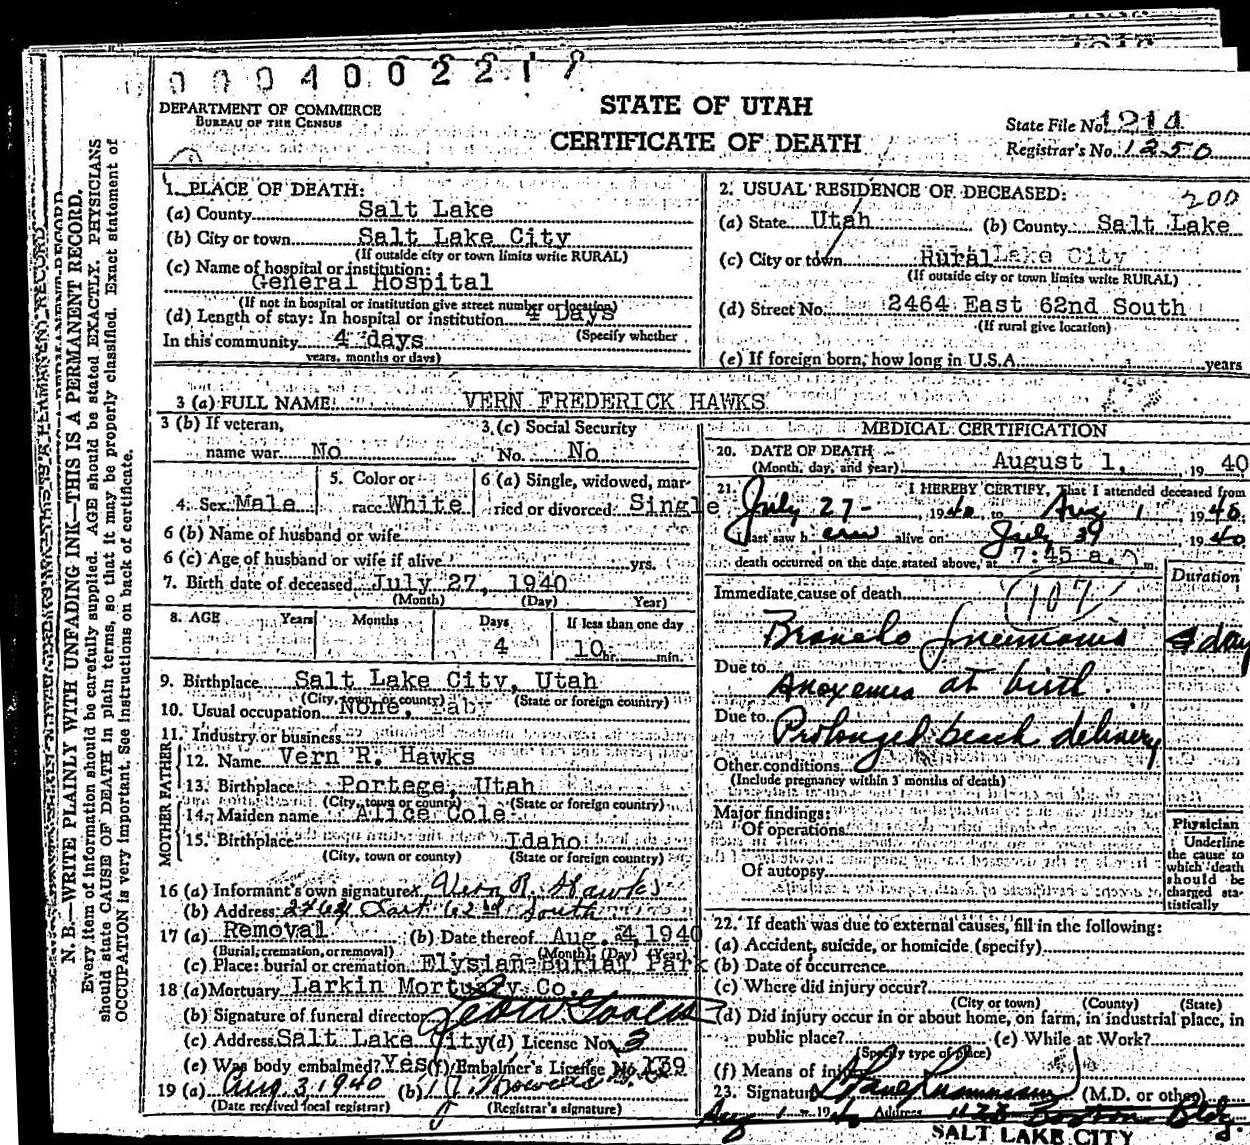 0004002217
DEPARTMENT OF COMMERCE
BUREAU OF THE CENSUS
STATE OF UTAH
CERTIFICATE OF DEATH
State File No. 1214
Registrar's No. 1250
N. B.—WRITE PLAINLY WITH UNFADING INK—THIS IS A PERMANENT RECORD.
Every item of information should be carefully supplied. AGE should be stated EXACTLY. PHYSICIANS
should state CAUSE OF DEATH in plain terms, so that it may be properly classified. Exact statement of
OCCUPATION is very important. See instructions on back of certificate.
1. PLACE OF DEATH:
(a) County Salt Lake
(b) City or town Salt Lake City
(If outside city or town limits write RURAL)
(c) Name of hospital or institution:
General Hospital
(If not in hospital or institution give street number or location)
(d) Length of stay: In hospital or institution 4 Days
(Specify whether
In this community 4 days
years, months or days)
2. USUAL RESIDENCE OF DECEASED:
200
(a) State Utah (b) County Salt Lake
(c) City or town Rural Lake City
(If outside city or town limits write RURAL)
(d) Street No. 2464 East 62nd South
(If rural give location)
(e) If foreign born, how long in U.S.A. years
3 (a) FULL NAME VERN FREDERICK HAWKS
3 (b) If veteran,
name war No
3. (c) Social Security
No. No
4. Sex Male
5. Color or
race White
6 (a) Single, widowed, mar-
ried or divorced Single
6 (b) Name of husband or wife
6 (c) Age of husband or wife if alive yrs.
7. Birth date of deceased July 27, 1940
(Month) (Day) Year)
8. AGE Years Months Days If less than one day
4 10 hr. min.
9. Birthplace Salt Lake City, Utah
(City, town or county) (State or foreign country)
10. Usual occupation None, Baby
11. Industry or business
FATHER
12. Name Vern R. Hawks
13. Birthplace Portage, Utah
(City, town or county) (State or foreign country)
MOTHER
14. Maiden name Alice Cole
15. Birthplace Idaho
(City, town or county) (State or foreign country)
16 (a) Informant's own signature Vern R. Hawks
(b) Address 2464 East 62nd South
17 (a) Removal (b) Date thereof Aug. 4, 1940
(Burial, cremation, or removal) (Month) (Day) (Year)
(c) Place: burial or cremation Elysian Burial Park
18 (a) Mortuary Larkin Mortuary Co.
(b) Signature of funeral director
(c) Address Salt Lake City (d) License No. 3
(e) Was body embalmed? Yes (f) Embalmer's License No. 139
19 (a) Aug 3, 1940 (b)
(Date received local registrar) (Registrar's signature)
MEDICAL CERTIFICATION
20. DATE OF DEATH
(Month, day, and year) August 1, 1940
21. I HEREBY CERTIFY, That I attended deceased from
July 27 - 1940 to Aug 1 1940
last saw h alive on July 1940
death occurred on the date stated above, at 7:45 a. m
Immediate cause of death (107) Duration
Broncho Pneumonia 4 day
Due to Anoxemia at birth
Due to Prolonged beach delivery
Other conditions
(Include pregnancy within 3 months of death)
Major findings:
Of operations
Of autopsy
Physician
Underline
the cause to
which death
should be
charged sta-
tistically
22. If death was due to external causes, fill in the following:
(a) Accident, suicide, or homicide (specify)
(b) Date of occurrence
(c) Where did injury occur?
(City or town) (County) (State)
(d) Did injury occur in or about home, on farm, in industrial place, in
public place? (e) While at Work?
(Specify type of place)
(f) Means of injury
23. Signature (M.D. or other)
Aug 1 - 1940 Address Boston Bldg
SALT LAKE CITY